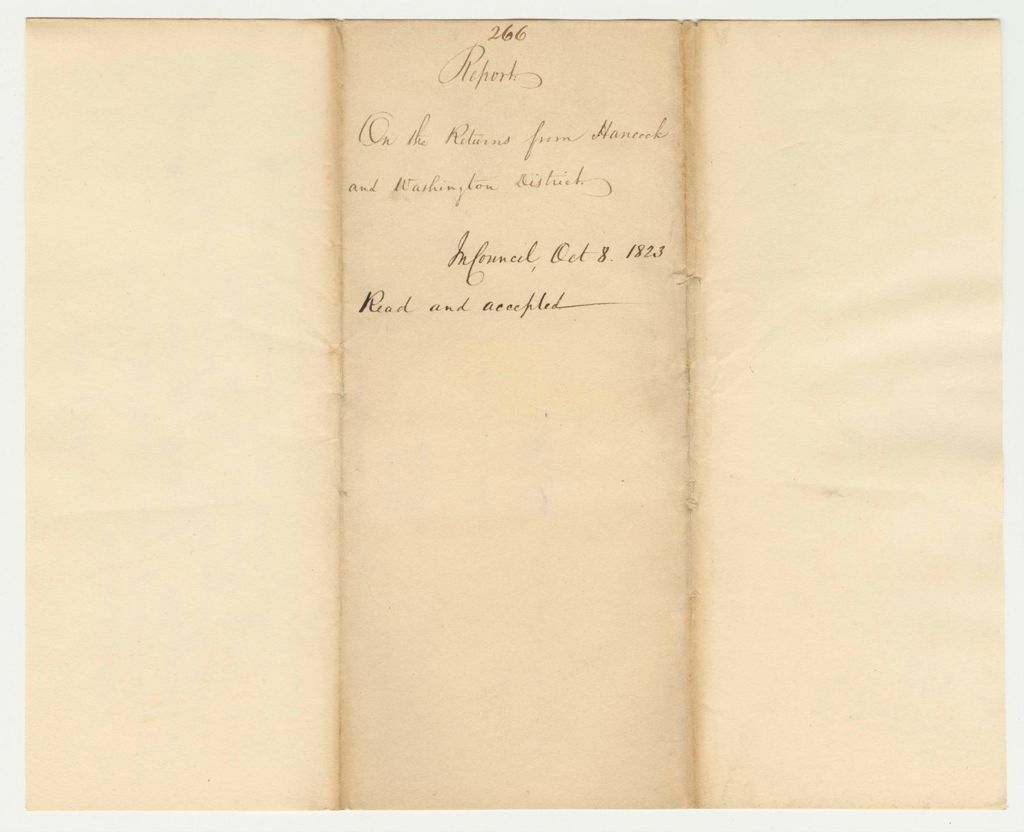 266
Report
On the Returns from Hancock
and Washington District.
In Council, Oct 8. 1823
Read and accepted